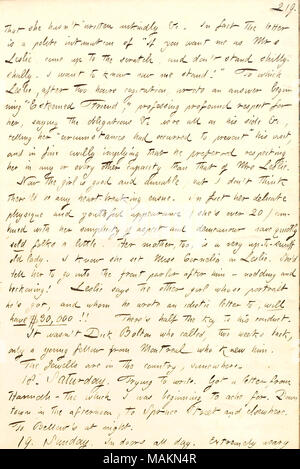 219.
that she hasn't written unkindly &c. In fact the letter
is a polite intimation of "if you want me as Mrs
Leslie come up to the scratch and don't stand shally-
shally. I want to know how we stand!" To which
Leslie, after two hours cogitation wrote an answer begin-
ning "Esteemed Friend," professing profound respect for
her, saying the obligations &c were all on his side &
telling her "circumstances had occurred to prevent his visit
and in fine civilly implying that he preferred respecting
her in any or every other capacity than that of Mrs Leslie.
Now the girl is good and amiable, but I don't think
there'll be any heart breaking ensue. In fact her delicate
physique and youthful appearance (she's over 20) com-
bined with her simplicity of aspect and demeanour have quietly
sold folks a little. Her mother, too, is a very up-to-snuff
old lady. I know she set Miss Cornelia on Leslie. She'd
tell her to go into the front parlor after him - nodding and
beckoning! Leslie says the other girl whose portrait
he's got, and whom he wrote an idiotic letter to, will
have $30,000 !! There's half the key to his conduct.
It wasn't Dick Bolton who called, two weeks back,
only a young fellow from Montreal who knew him.
The Jewells are in the country, somewhere.
18. Saturday. Trying to write. Got a letter from
Hannah - the which I was beginning to ache for. Down
town in the afternoon, to Spruce Street and elsewhere.
To Bellew's at night.
19. Sunday. In doors all day. Extremely weary
alamy
Image ID: MAKN4R
www.alamy.com